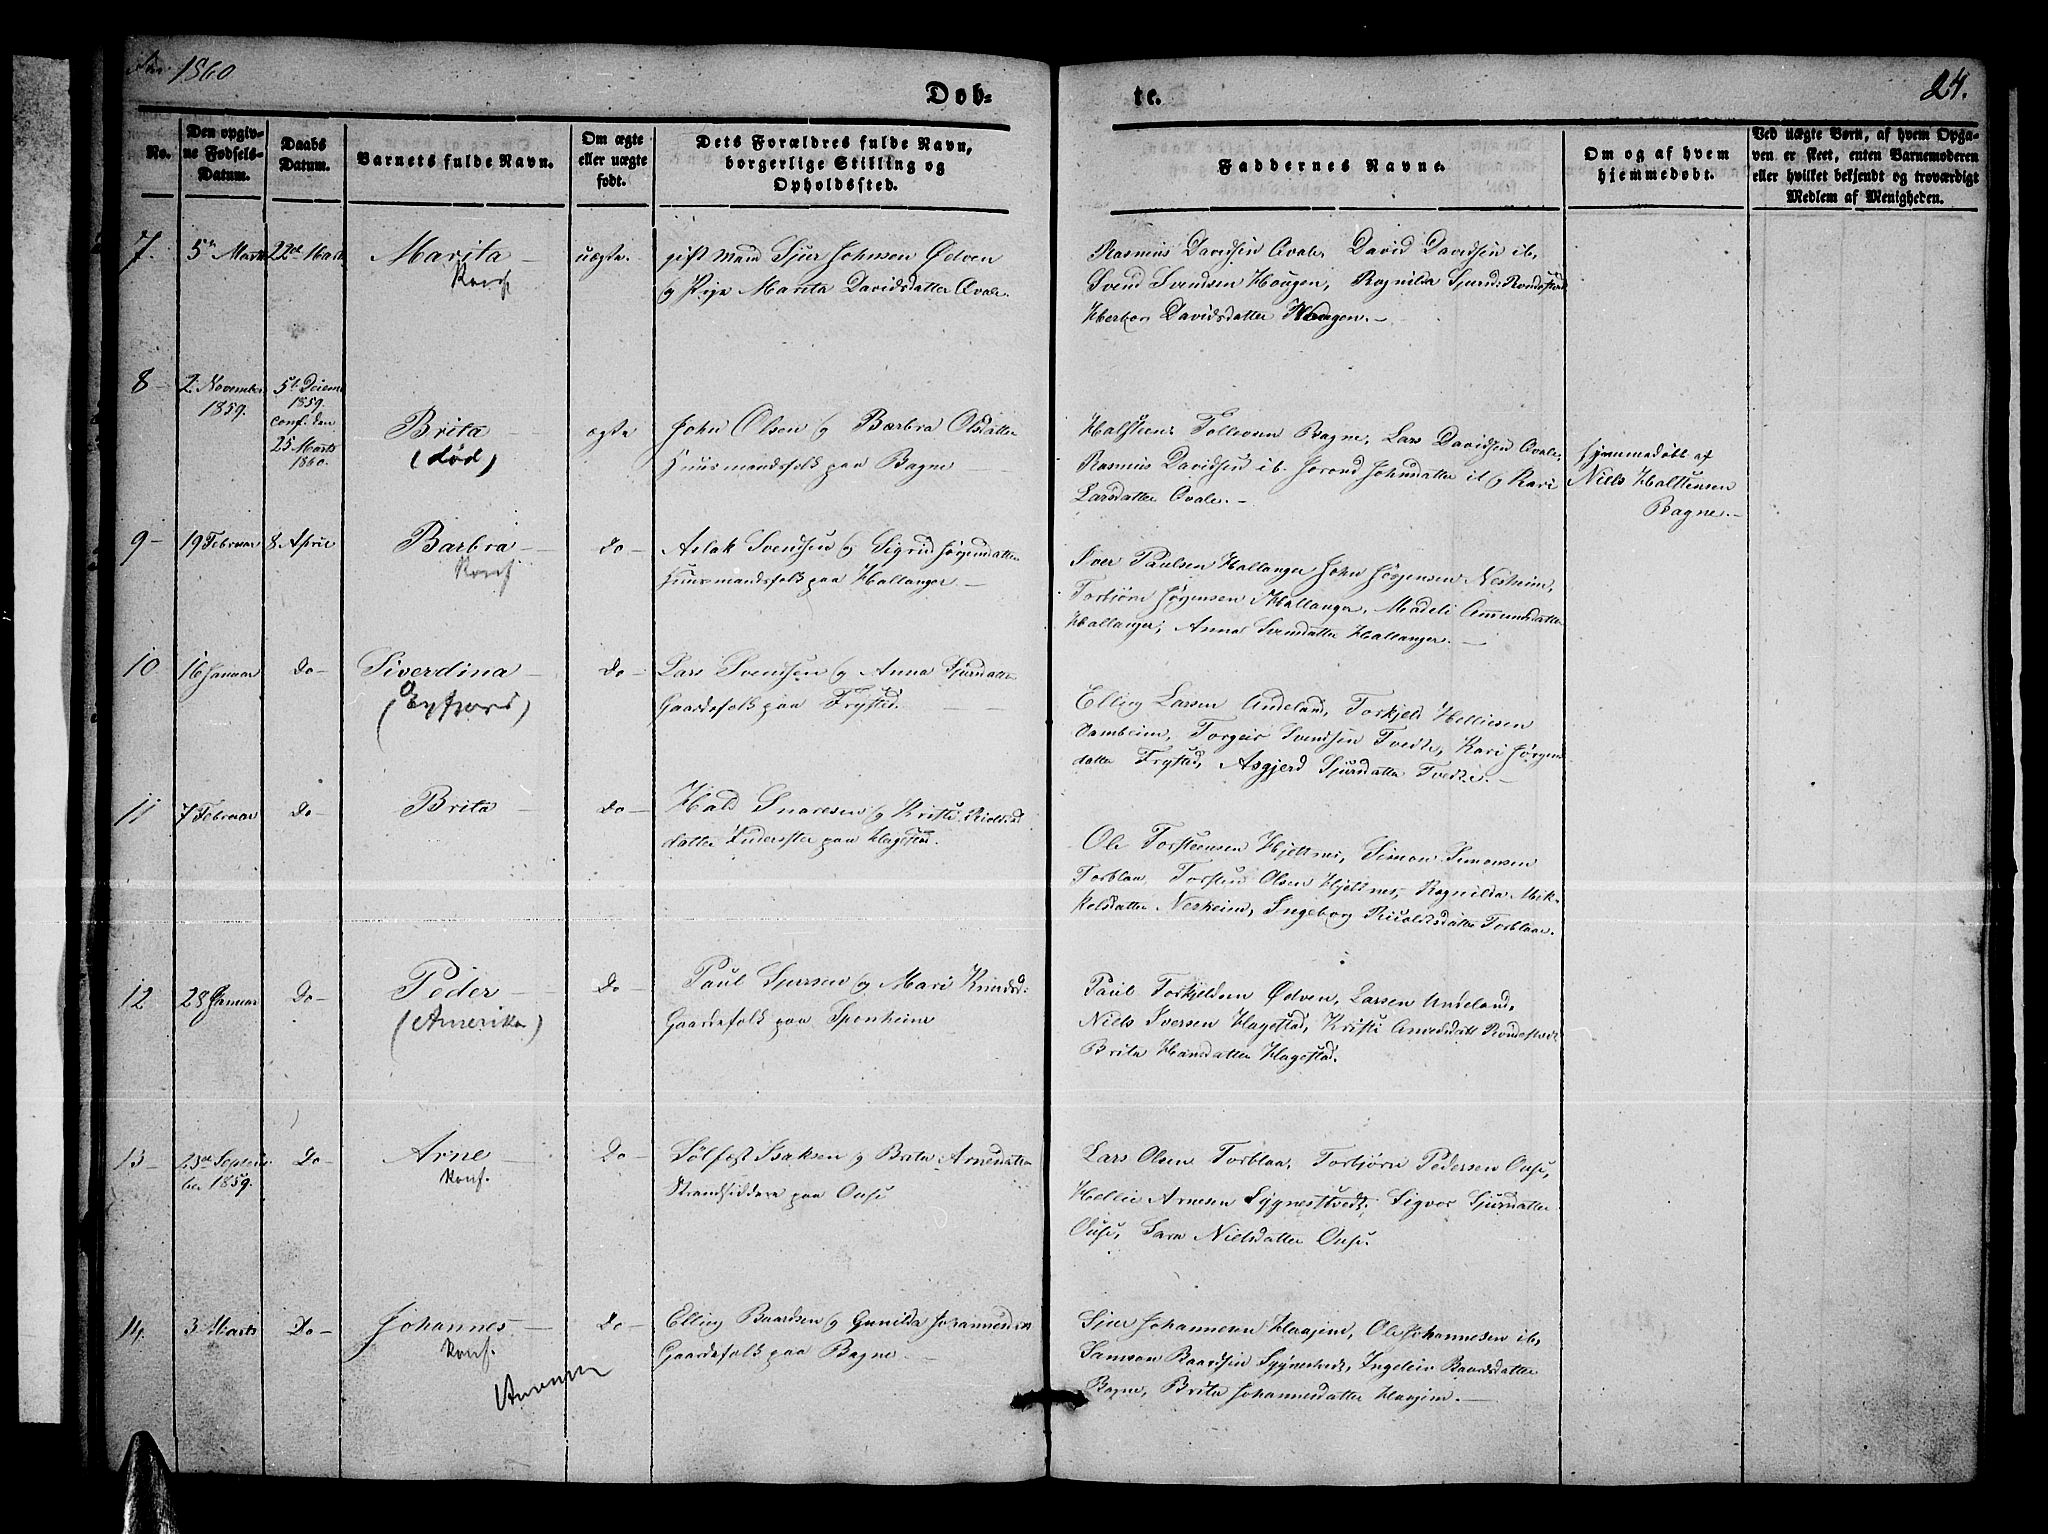 1860
24.
Døb-
te.
No.
Den opgiv-
ne Fødsels-
Datum.
Daabs
Datum.
Barnets fulde Navn.
Om ægte
eller uægte
født.
Dets Forældres fulde Navn,
borgerlige Stilling og
Opholdssted.
Faddernes Navne.
Om og af hvem
hjemmedøbt.
Ved uægte Børn, af hvem Opga-
ven er skeet, enten Barnemoderen
eller hvilket bekjendt og troværdigt
Medlem af Menigheden.
7.
5te Marts
22de Marts
Marita
Konf
uægte.
gift Mand Sjur Johnsen Ødven
og Pige Marita Davidsdatter Qvale.
Rasmus Davidsen Qvale, David Davidsen ib.
Svend Svendsen Hougen, Ragnilda Sjursd.
Herbor Davidsdatter
8
2. November
1859.
5te Decemb
1859.
conf. den
25 Marts
1860.
Brita
(død)
ægte
John Olsen og Barbra Olsdatter
Huusmandsfolk paa Bagne
Halsteen Tollevsen Bagne, Lars Davidsen Qvale,
Rasmus Davidsen ib. Jorond Johnsdatter ib og Kari
Larsdatter Qvale.
hjemmedøbt af
Niels Halsteensen
Bagne.
9
19 Februar
8 April
Barbra
Konf
do
Aslak Svendsen og Sigrid Jørgensdatter
Huusmandsfolk paa Hallanger
Iver Paulsen Hallanger John Jørgensen Nesheim,
Torbjørn Jørgensen Hallanger, Madeli Amundsdatter
Hallanger, Anna Svendsdatter Hallanger.
10
16 Januar
do
Siverdina
do
Lars Svendsen og Anna Sjursdatter
Gaardsfolk paa Frysted.
Elling Larsen Undeland, Torkjeld Helliesen
Dambeim, Torgeir Svendsen Tvedte, Kari Jørgens
datter Frysted, Asgjerd Sjursdatter Tvedte.
11
7 Februar
do
Brita
do
Hald Snaresen og Kristi
datter paa Hagestad.
Ole Torsteensen Hjeltnes, Simon Simonsen
Torblaa, Torsten Olsen Hjeltnes, Ragnilda Mik-
kelsdatter Nesheim, Ingeborg Torblaa.
12
28 Januar
Do
Peder
(Amerika)
do
Paul Sjursen og Mari Knudsd:
Gaardsfolk paa Sponheim
Paul Torkjeldsen Ødven, Larsen Undeland,
Niels Iversen Hagestad, Kristi
Brita Hansdatter Hagestad.
13
23de Septem
ber 1859.
Do
Arne
Konf.
Do
Sølfest Isaksen og Brita Arnesdatter
Strandsiddere paa Ouse
Lars Olsen Torblaa, Torbjørn Pedersen Ouse,
Hellie Arnesen Sygnestvedt, Sigvor Sjursdatter
Ouse, Sara Nielsdatter Ouse.
14.
3 Marts
Do
Johannes
Konf.
do
Elling Baardsen og Gunilda Johannesdatter
Gaardsfolk paa Bagne
Sjur Johannesen Haajem, Ole Johannesen ib,
Samson Baardsen Sygnestvedt, Ingeleiv Baardsdatter
Bagne, Brita Johannesdatter Haajem.